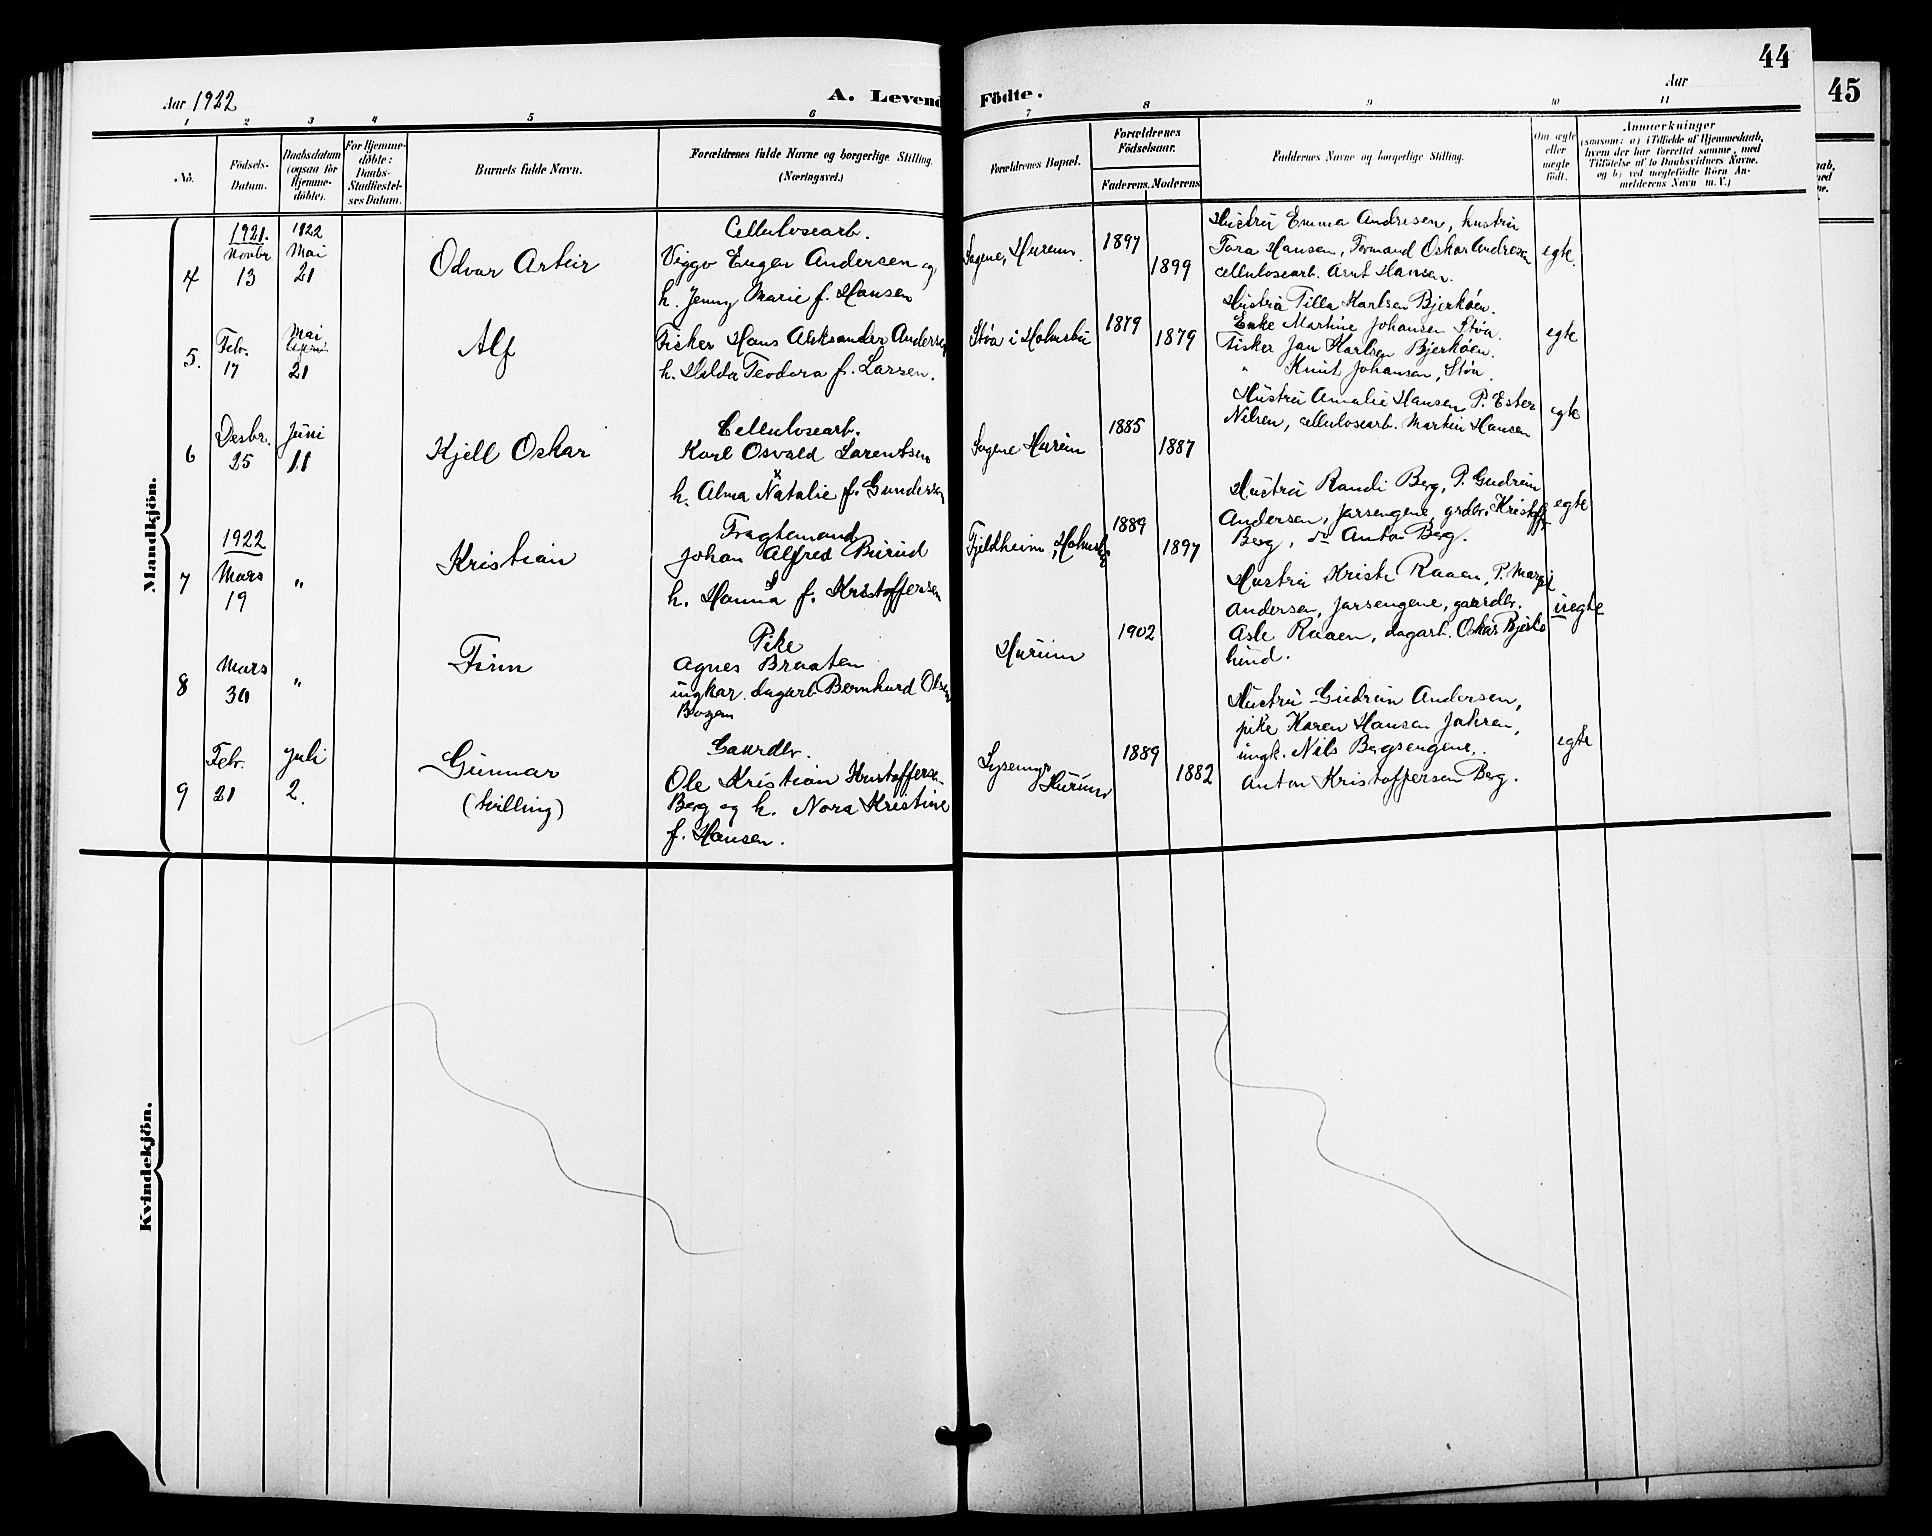 44
45
Aar 1922
A. Levend
Födte.
Aar
1 2 3 4 5 6 7 8 9 10 11
No.
Födsels-
Datum.
Daabsdatum
(ogsaa for
Hjemme-
döbte).
For Hjemme-
döbte:
Daabs-
Stadfæstel-
ses Datum.
Barnets fulde Navn.
Forældrenes fulde Navne og borgerlige Stilling.
(Næringsvei.)
Forældrenes Bopæl.
Forældrenes
Födselsaar.
Faderens. Moderens.
Faddernes Navne og borgerlige Stilling.
Om ægte
eller
uægte
födt.
Anmærkninger
(saasom: a) i Tilfælde af Hjemmedaab,
hvem der har forrettet samme, med
Tilföielse af to Daabsvidners Navne,
og b) ved uægtefödte Börn An-
melderens Navn m. V.)
Mandkjön.
4
1921.
Novbr
13
1922
Mai
21
Odvar Artur
Cellulosearb.
Viggo Eugen Andersen og
h. Jenny Marie f. Hansen
Sagene, Hurum.
1897
1899
Hustru Emma Andresen, hustru
Tora Hansen, Formand Oskar Andresen
cellulosearb. Arnt Hansen.
egte.
5.
Febr.
17
Mai
21
Alf
Fisker Hans Aleksander Andersen
h. Hilda Teodora f. Larsen.
Støa i Holmsbu
1879
1879
Hustru Tilla Karlsen Bjerkøen.
Enke Martine Johansen Støa.
Fisker Jan Karlsen Bjerkøen.
" Knut Johansen, Støa.
egte
6
Desbr.
25
Juni
11
Kjell Oskar
Cellulosearb.
Karl Osvald Larentsen
h. Alma Natalie f. Gundersen
Sagene Hurum
1885
1887
Hustru Amalie Hansen, P. Ester
Nilsen, cellulosearb. Martin Hansen
egte
7
1922
Mars
19
"
Kristian
Fragtemand
Johan Alfred Burud
h. Hanna f. Kristoffersen
Fjeldheim, Holmsbu
1889
1897
Hustru Randi Berg, P. Gudrun
Andersen, Jarsengene, grdbr. Kristoffer
Berg, do Anton Berg.
egte
8
Mars
30
"
Finn
Pike
Agnes Braaten
ungkar. dagarb. Bernhard Olsen
Bogen
Hurum
1902
Hustru Kristi Raaen, P. Margit
Andersen, Jarsengene, gaardbr.
Asle Raaen, dagarb. Oskar Bjerke
hund.
uegte
9
Febr.
21
Juli
2.
Gunnar
(tvilling)
Gaardbr.
Ole Kristian Kristoffersen
Berg og h. Nora Kristine
f. Hansen.
Lysemyr
Hurum
1889
1882
Hustru Gudrun Andersen,
pike Karen Hansen Jahren,
ungk. Nils Bergsengene,
Anton Kristoffersen Berg.
egte
Kvindekjön.